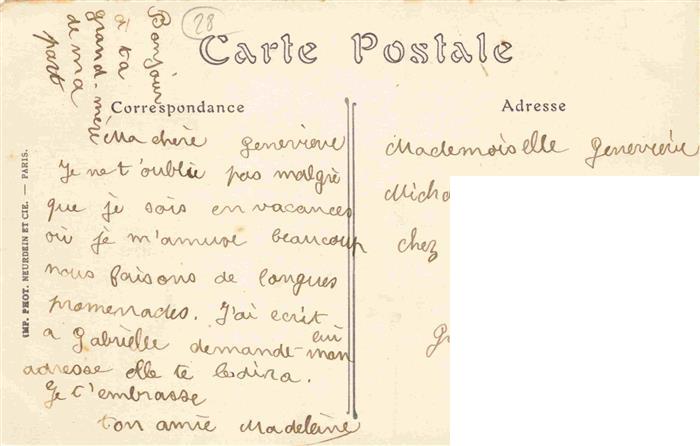 Bonjour
à ta
grand-mère
de ma
part
28
Carte Postale
Correspondance
Adresse
Ma chère Geneviève
Je ne t'oublie pas malgré
que je sois en vacances
où je m'amuse beaucoup
nous faisons de longues
promenades. J'ai ecrit
a Gabrielle demande-lui mon
adresse elle te le dira.
Je t'embrasse
ton amie Madeleine
Mademoiselle Geneviève
Micha
chez
IMP. PHOT. NEURDEIN ET CIE. — PARIS.